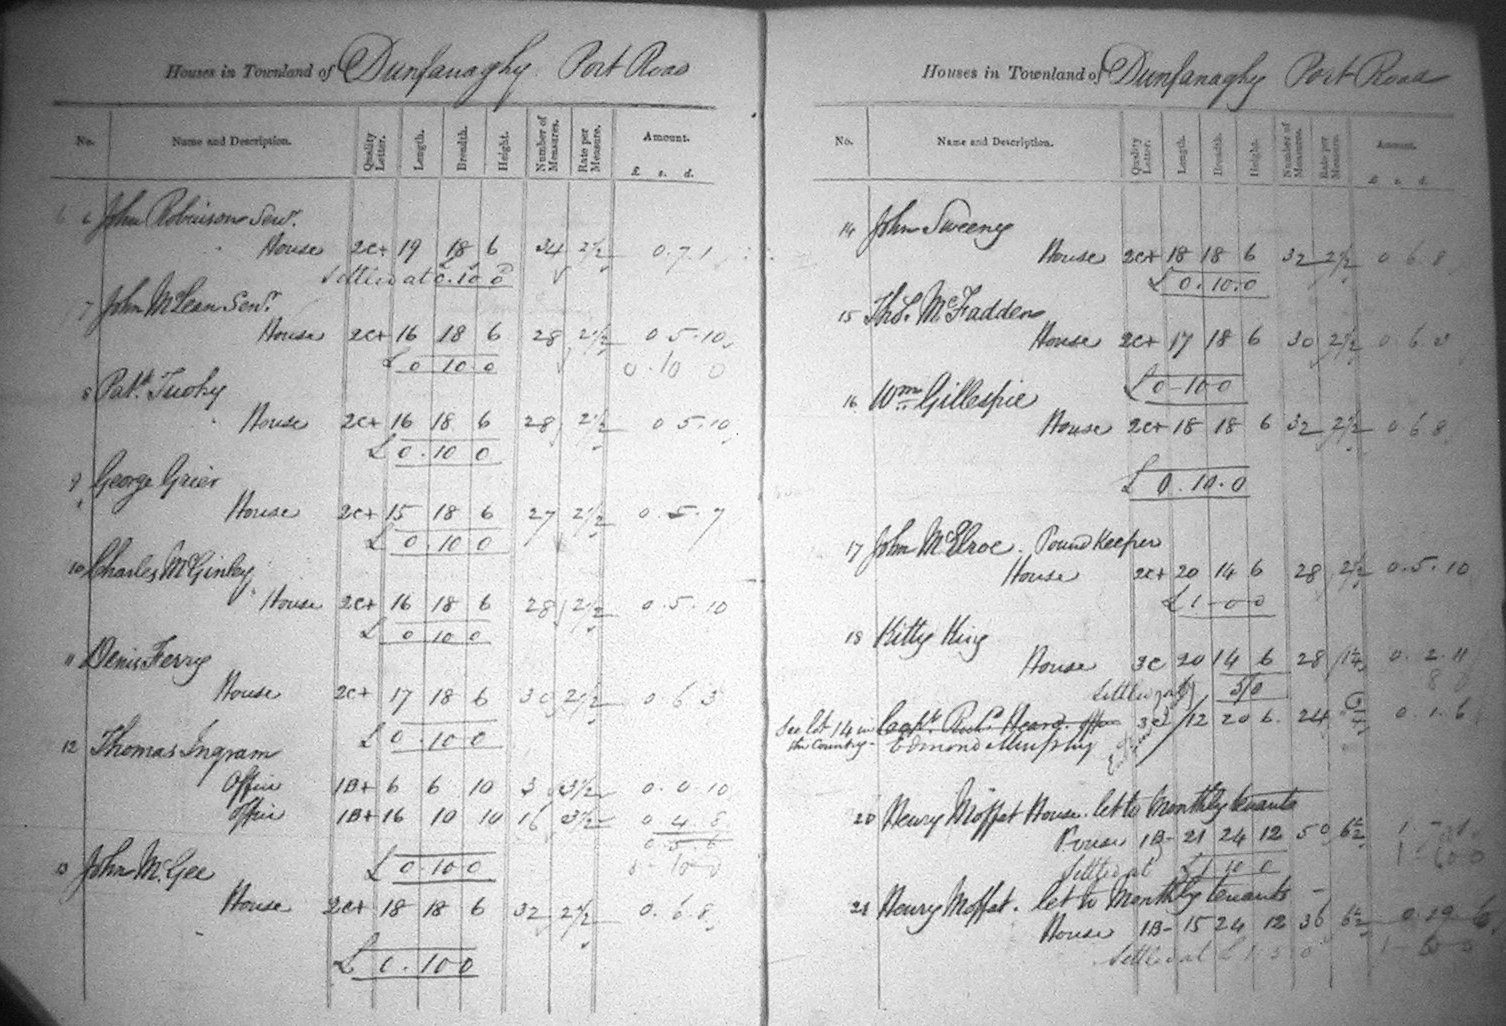 Houses in Townland of Dunfanaghy Port Road
No. Name and Description. Quality Letter. Length. Breadth. Height. Number of Measures. Rate per Measure. Amount.
£. s. d.
6 John Robinson Senr.
House 2C+ 19 18 6 34 2½ 0.7.1
Settled at 0.10.0
7 John McLean Senr.
House 2C+ 16 18 6 28 2½ 0.5.10
£0.10.0 0.10.0
8 Patk. Tuohy
House 2C+ 16 18 6 28 2½ 0.5.10
£0.10.0
9 George Grier
House 2C+ 15 18 6 27 2½ 0.5.7
£0.10.0
10 Charles McGinley
House 2C+ 16 18 6 28 2½ 0.5.10
£0.10.0
11 Denis Ferry
House 2C+ 17 18 6 30 2½ 0.6.3
£0.10.0
12 Thomas Ingram
Office 1B+ 6 6 10 3 3½ 0.0.10
Office 1B+ 16 10 10 16 3½ 0.4.8
0.5.6
0-10-0
£0.10.0
13 John McGee
House 2C+ 18 18 6 32 2½ 0.6.8
£0.10.0
Houses in Townland of Dunfanaghy Port Road
No. Name and Description. Quality Letter. Length. Breadth. Height. Number of Measures. Rate per Measure. Amount.
£. s. d.
14 John Sweeney
House 2C+ 18 18 6 32 2½ 0.6.8
£0.10.0
15 Thos. McFadden
House 2C+ 17 18 6 30 2½ 0.6.3
£0-10-0
16 Wm Gillespie
House 2C+ 18 18 6 32 2½ 0.6.8
£0.10.0
17 John McElroe. Pound Keeper
House 2C+ 20 14 6 28 2½ 0.5.10
£1-0-0
18 Kitty King
House 3C 20 14 6 28 1¼ 0.2.11
Settled 5/0
See Lot 14 in Capt. Richd. Heard 3C 12 20 6 24 0.1.6
the Country - Edmond Murphy
20 Henry Moffat House. let to Monthly tenants
House 1B- 21 24 12 50 6½
Settled at £1 10 0
21 Henry Moffat. let to Monthly tenants -
House 1B- 15 24 12 36 6½ 0.19.6
Settled at £1.5.0